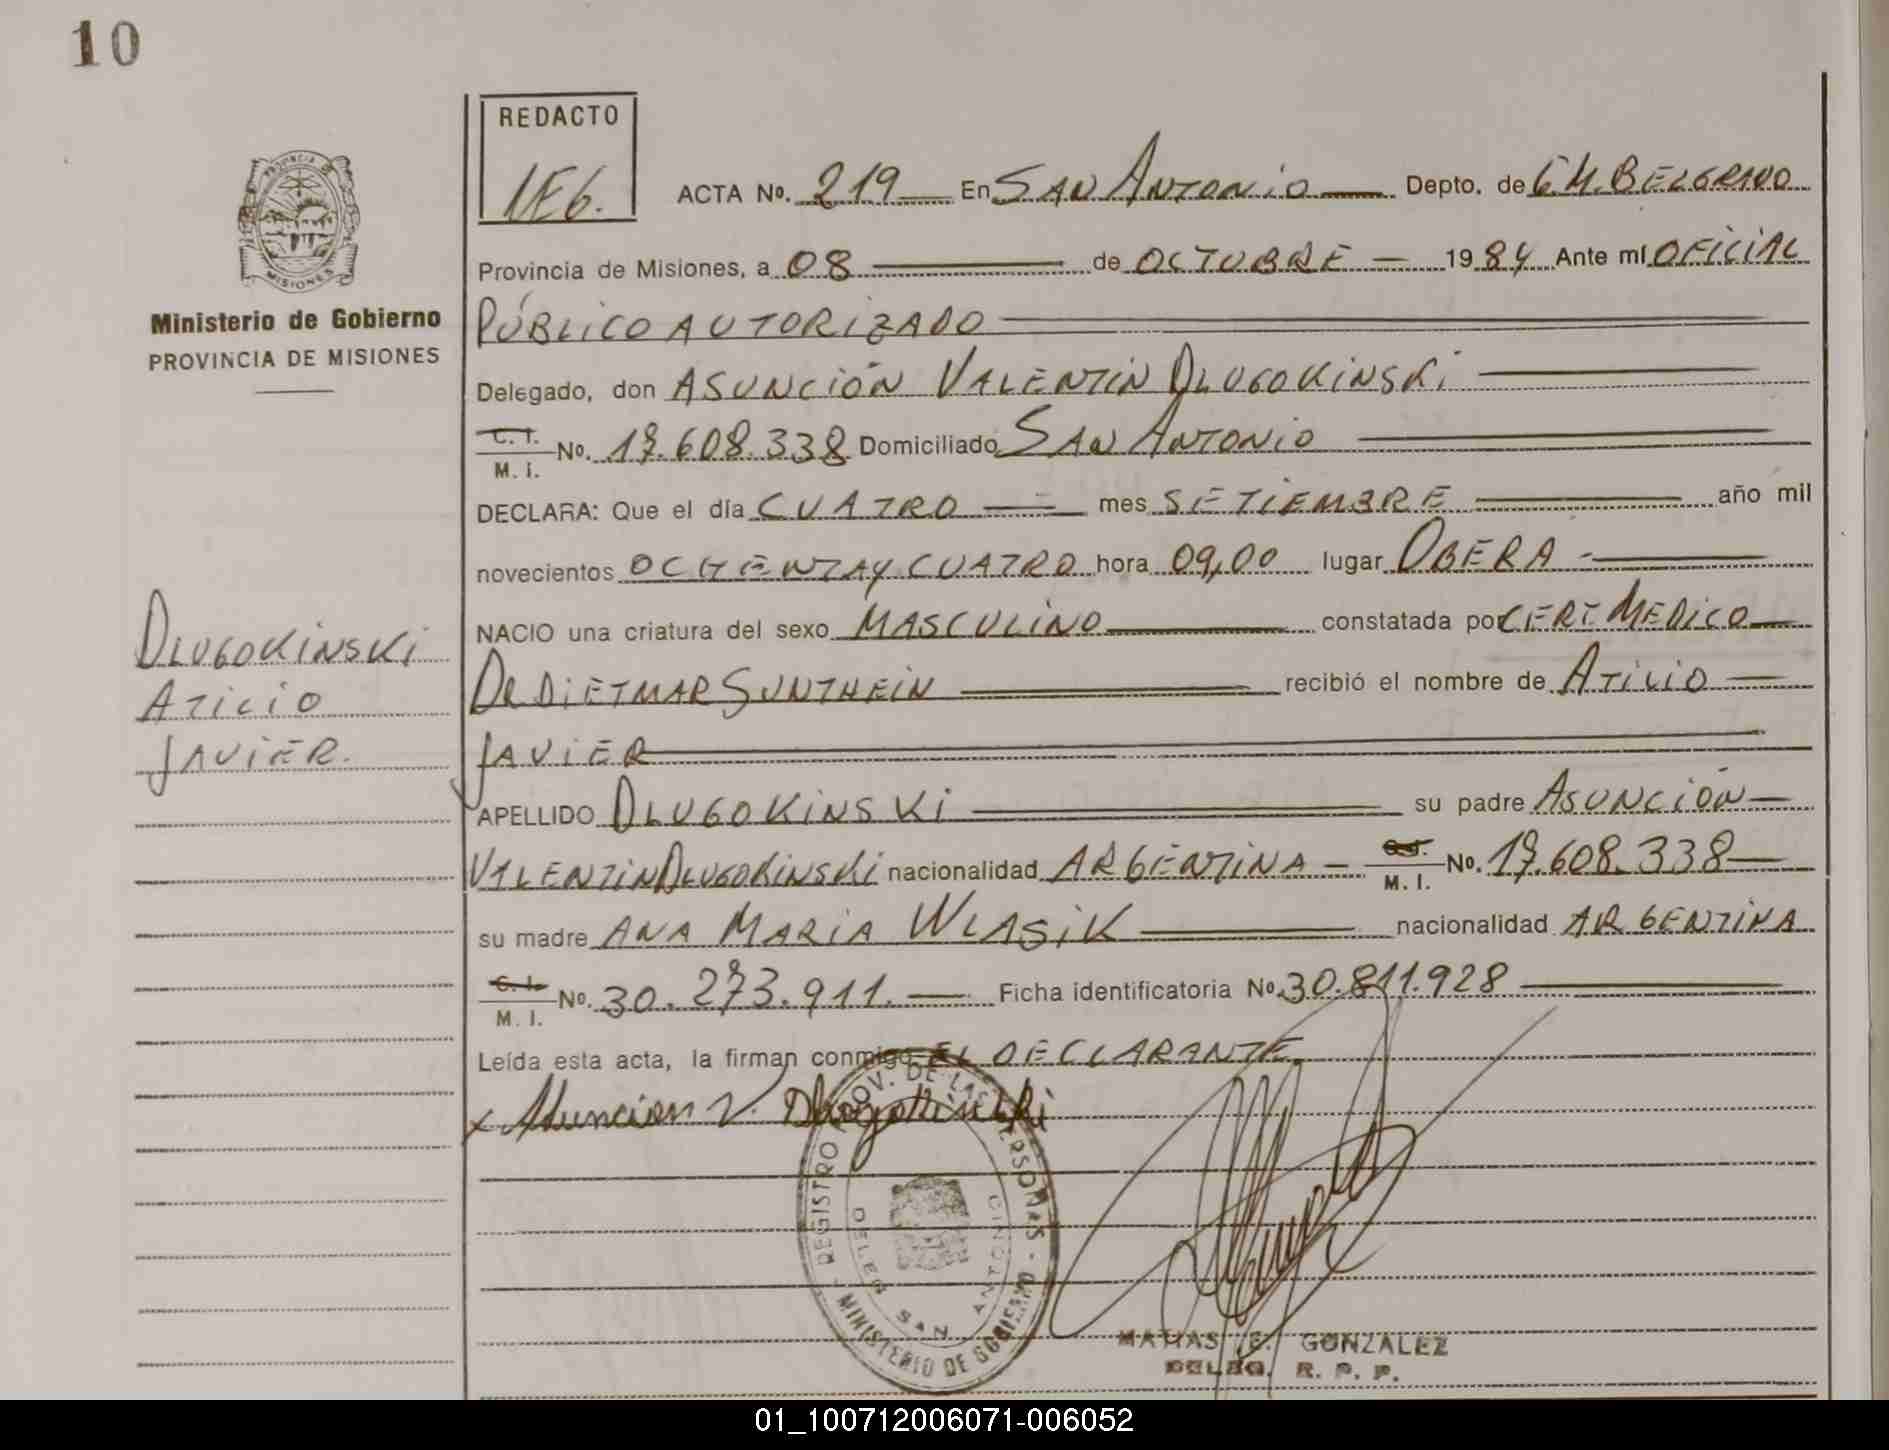 10
REDACTO
ACTA Nº. 219 En SAN ANTONIO Depto. de G M. BELGRANO
Provincia de Misiones, a 08 de OCTUBRE 1984 Ante mí OFICIAL
Ministerio de Gobierno
PROVINCIA DE MISIONES
PÚBLICO AUTORIZADO
Delegado, don ASUNCIÓN VALENTIN DLUGOKINSKI
C. I. M. I. Nº. 17.608.338 Domiciliado SAN ANTONIO
DECLARA: Que el día CUATRO mes SETIEMBRE año mil
novecientos OCHENTA Y CUATRO hora 09,00 lugar OBERA
NACIO una criatura del sexo MASCULINO constatada por CERT MEDICO
DR DIETMAR SUNTHEIN recibió el nombre de ATILIO
JAVIER
DLUGOKINSKI
ATILIO
JAVIER.
APELLIDO DLUGOKINSKI su padre ASUNCIÓN
VALENTIN DLUGOKINSKI nacionalidad ARGENTINA M. I. Nº. 17.608.338
su madre ANA MARIA WLASIK nacionalidad ARGENTINA
C. I. M. I. Nº. 30.273.911. Ficha identificatoria Nº. 30.811.928
Leída esta acta, la firman conmigo EL DECLARANTE.
x Asuncion V. Dlugokinski
REGISTRO PROV. DE LAS PERSONAS - MINISTERIO DE GOBIERNO
DELEG. SAN ANTONIO
MATIAS E. GONZALEZ
DELEG. R. P. P.
01_100712006071-006052